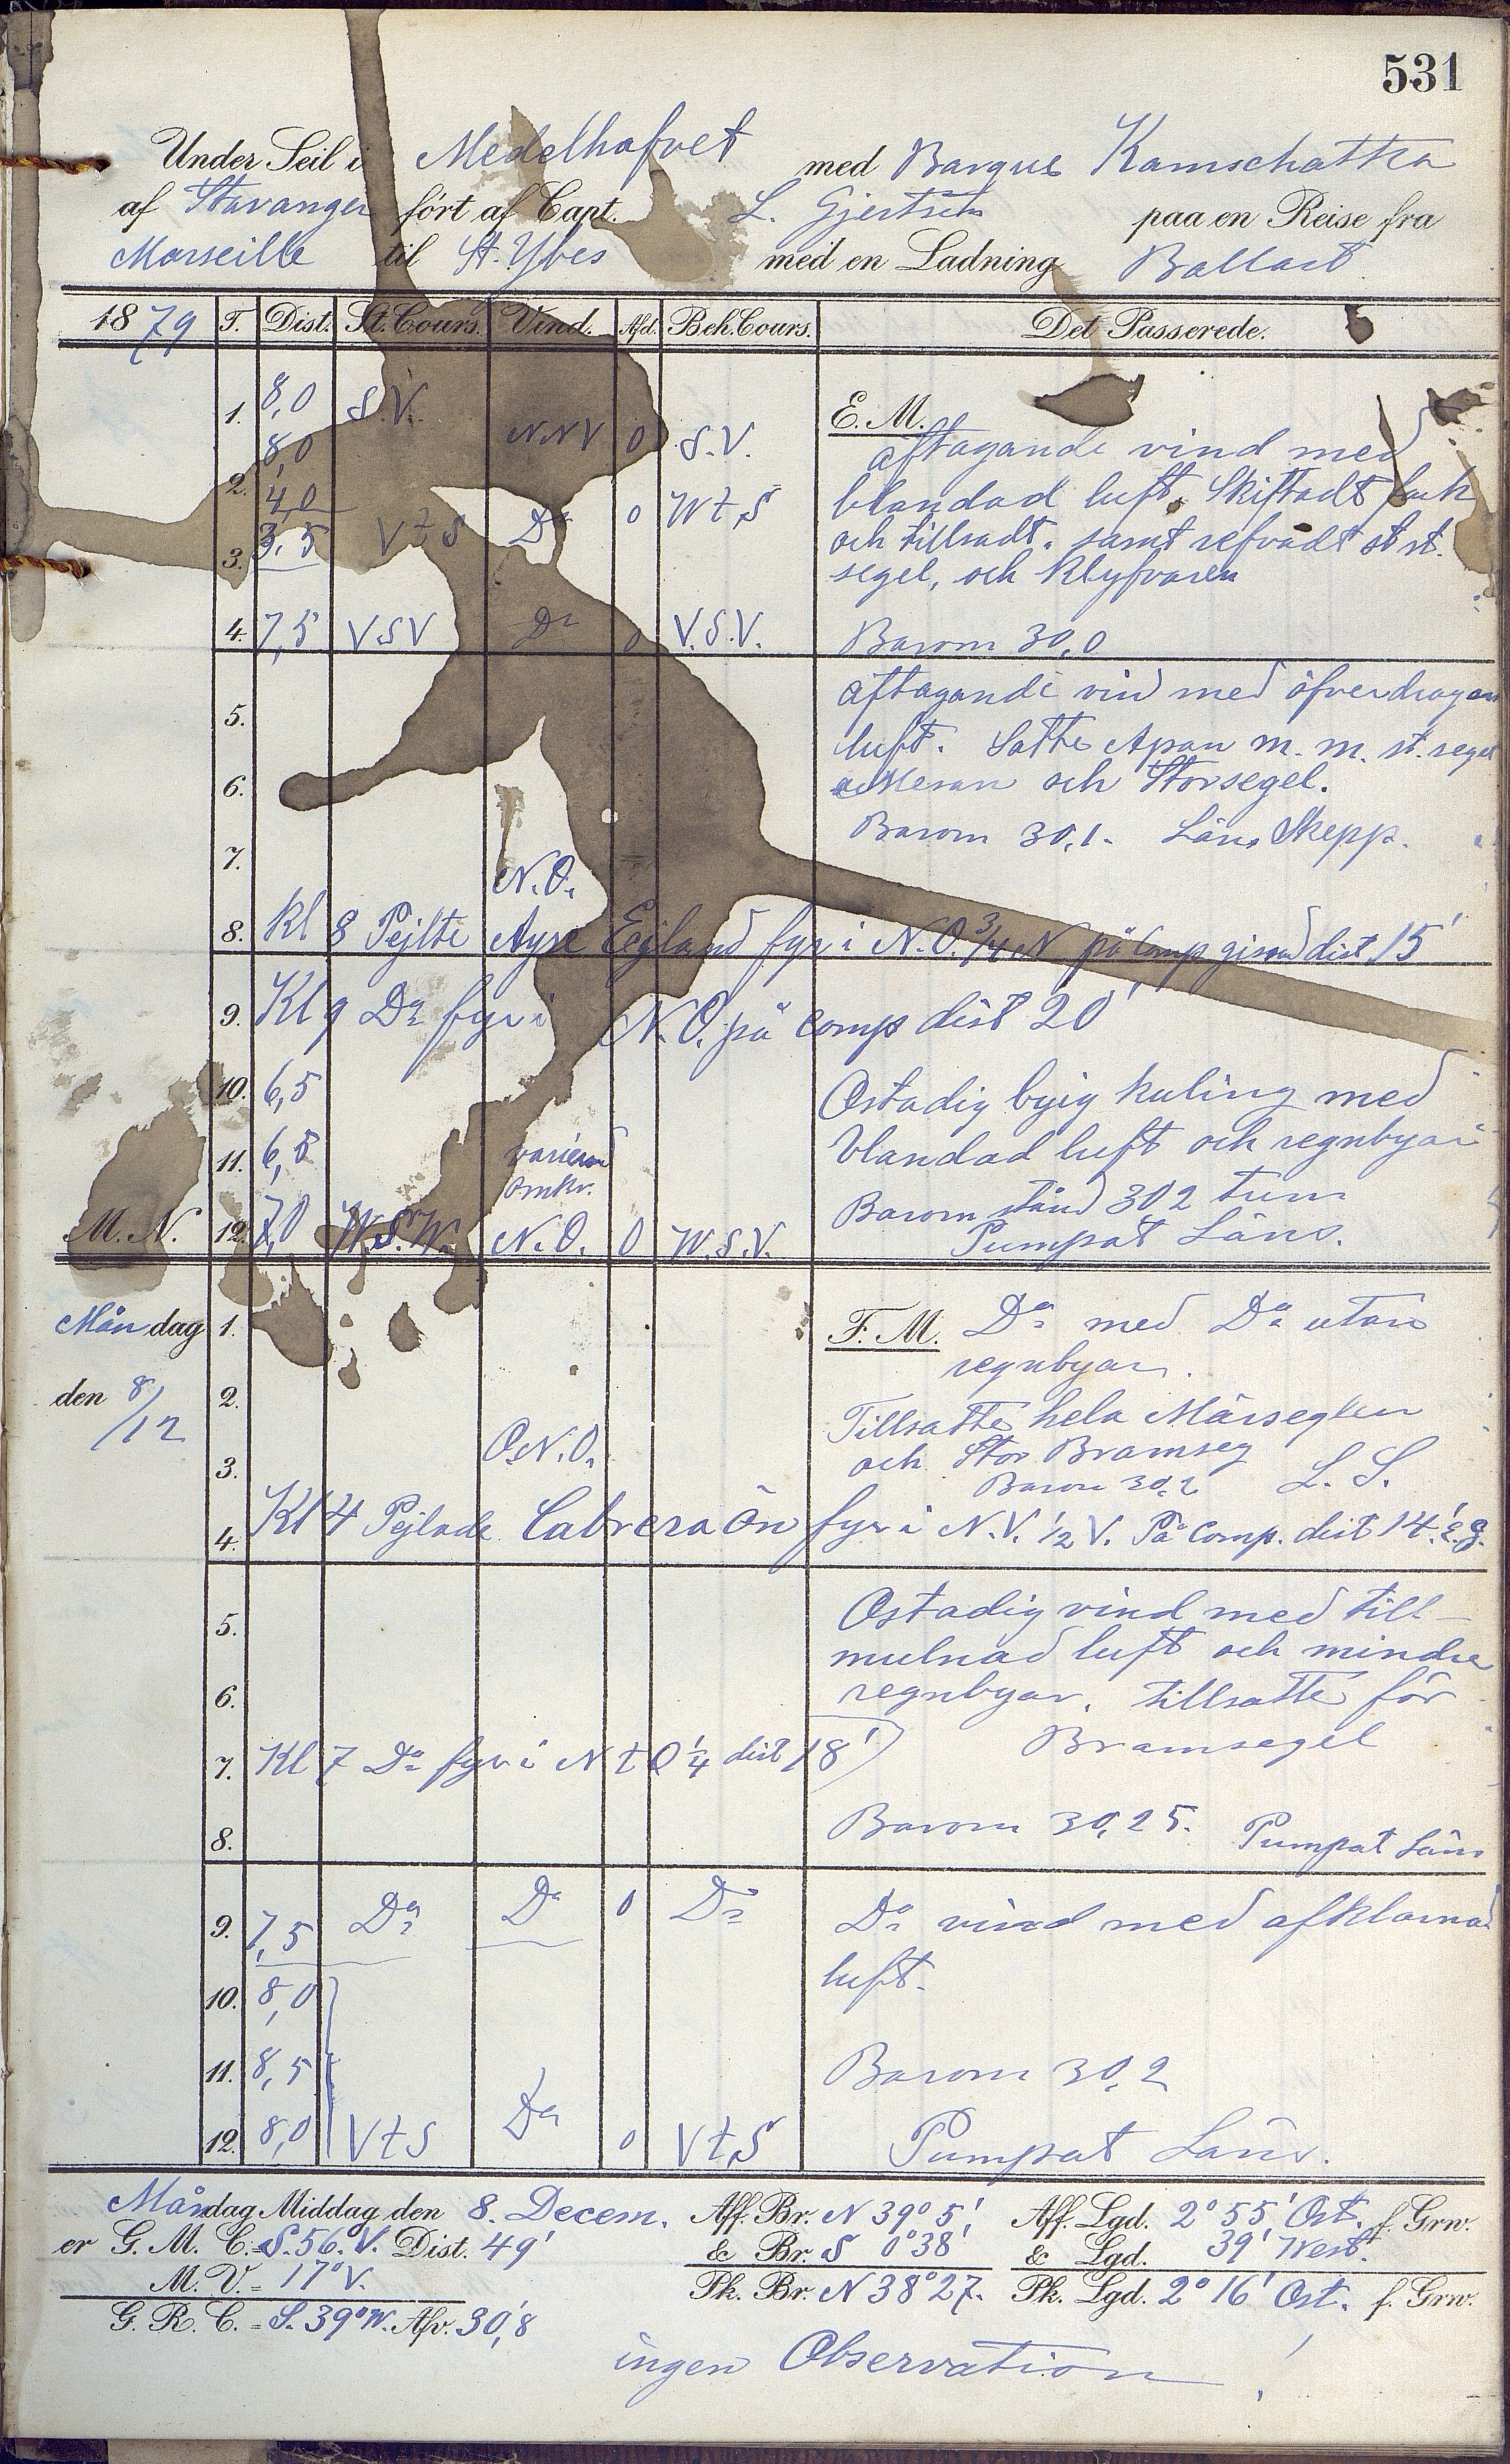 531
Under Seil i Medelhafvet med Barque Kamschatka
af Stavanger fört af Capt. L. Gjertsen paa en Reise fra
Marseille til St. Ybes med en Ladning Ballast.
1879 T. Dist. St. Cours. Vind. Afd. Beh. Cours. Det Passerede.
E. M.
1. 8,0 S.V. N.N.V 0 S.V.
aftagande vind med
2. 8,0
blandad luft. Skiftadt fock
4,0
3. 3,5 V t S Do 0 W t S
och tillsadt. samt refvadt st st.
segel, och Klyfvaren
4. 7,5 VSV Do 0 V.S.V. Barom 30,0
5. aftagande vind med öfverdragen
6. luft. Satte Apan m. m. st. segel
Mesan och Storsegel.
7. Barom 30,1. Läns Skepp.
N.O.
8. Kl 8 Pejlte Ayre Eyland fyr i N.O. 3/4 N på Comp gissad dist 15'
9. Kl 9 Do fyr i N.O. på comp dist 20'
10. 6,5 Ostadig byig kuling med
11. 6,5 blandad luft och regnbyar
varierad
omkr.
Barom stånd 302 tum
M. N. 12. 7,0 W.S.W. N.O. 0 W.S.V. Pumpat Läns.
Måndag 1. F. M. Do med Do utan
regnbyar.
den 8/12 2. Tillsatte hela Märseglen
3. O.N.O. och Stor Bramseg
Barom 30,2 L. S.
4. Kl 4 Pejlade Cabrera Ön fyr i N.V. 1/2 V. På Comp. dist 14'. E. G.
5. Ostadig vind med till-
mulnad luft och mindre
6. regnbyar. tillsatte för
Bramsegel
7. Kl 7 Do fyr i N t O 1/4 dist 18'
8. Barom 30,25. Pumpat Läns
9. 7,5 Do Do 0 Do Do vind med afklarnad
luft.
10. 8,0
11. 8,5 Barom 30,2
12. 8,0 V t S Do 0 V t S Pumpat Läns.
Måndag Middag den 8. Decem. Aff. Br. N 39° 5' Aff. Lgd. 2° 55' Ost. f. Grw.
er G. M. C. = S. 56. V. Dist. 49' & Br. S 0° 38' & Lgd. 39' West.
M. V. = 17° V. Pk. Br. N 38° 27. Pk. Lgd. 2° 16' Ost. f. Grw.
G. R. C. = S. 39° W. Afv. 30,'8
ingen Observation!